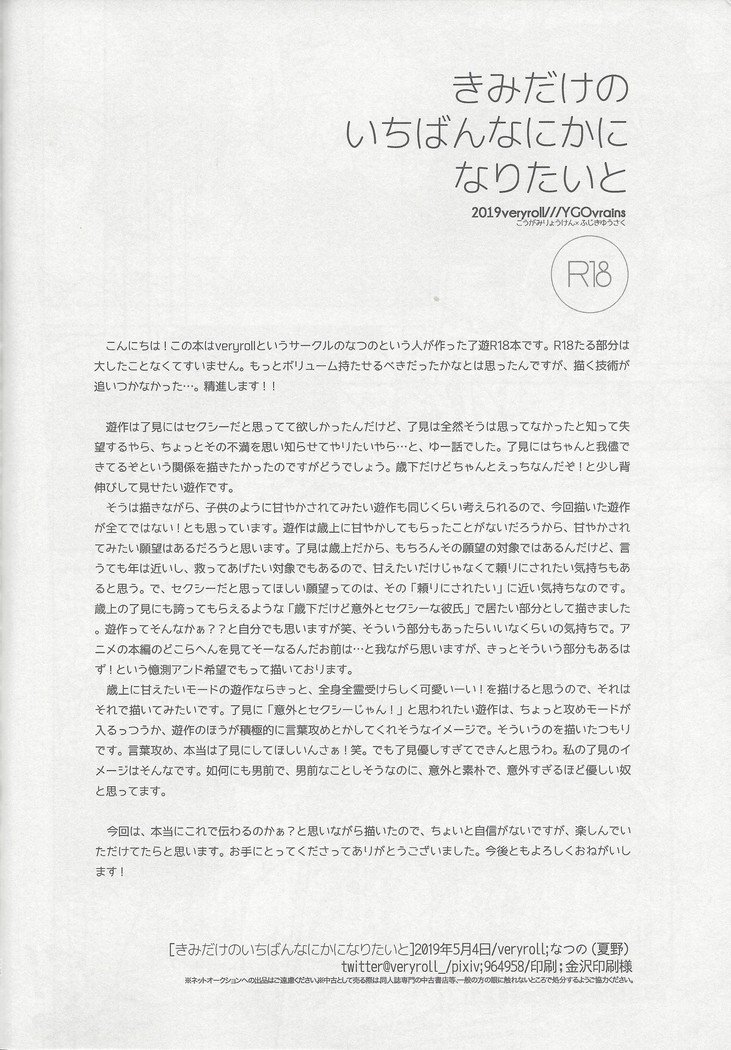 きみだけの
いちばんなにかに
なりたいと
2019veryroll///YGOvrains
こうがみりょうけん×ふじきゆうさく
R18
こんにちは！この本はveryrollというサークルのなつのという人が作った了遊R18本です。R18たる部分は
大したことなくてすいません。もっとボリューム持たせるべきだったかなとは思ったんですが、描く技術が
追いつかなかった…。精進します！！
遊作は了見にはセクシーだと思ってて欲しかったんだけど、了見は全然そうは思ってなかったと知って失
望するやら、ちょっとその不満を思い知らせてやりたいやら…と、ゆー話でした。了見にはちゃんと我儘で
きてるぞという関係を描きたかったのですがどうでしょう。歳下だけどちゃんとえっちなんだぞ！と少し背
伸びして見せたい遊作です。
そうは描きながら、子供のように甘やかされてみたい遊作も同じくらい考えられるので、今回描いた遊作
が全てではない！とも思っています。遊作は歳上に甘やかしてもらったことがないだろうから、甘やかされ
てみたい願望はあるだろうと思います。了見は歳上だから、もちろんその願望の対象ではあるんだけど、言
うても年は近いし、救ってあげたい対象でもあるので、甘えたいだけじゃなくて頼りにされたい気持ちもあ
ると思う。で、セクシーだと思ってほしい願望ってのは、その「頼りにされたい」に近い気持ちなのです。
歳上の了見にも誇ってもらえるような「歳下だけど意外とセクシーな彼氏」で居たい部分として描きました
。遊作ってそんなかぁ？？と自分でも思いますが笑、そういう部分もあったらいいなくらいの気持ちで。ア
ニメの本編のどこらへんを見てそーなるんだお前は…と我ながら思いますが、きっとそういう部分もあるは
ず！という憶測アンド希望でもって描いております。
歳上に甘えたいモードの遊作ならきっと、全身全霊受けらしく可愛いーい！を描けると思うので、それは
それで描いてみたいです。了見に「意外とセクシーじゃん！」と思われたい遊作は、ちょっと攻めモードが
入るっつうか、遊作のほうが積極的に言葉攻めとかしてくれそうなイメージで。そういうのを描いたつもり
です。言葉攻め、本当は了見にしてほしいんさぁ！笑。でも了見優しすぎてできんと思うわ。私の了見のイ
メージはそんなです。如何にも男前で、男前なことしそうなのに、意外と素朴で、意外すぎるほど優しい奴
と思ってます。
今回は、本当にこれで伝わるのかぁ？と思いながら描いたので、ちょいと自信がないですが、楽しんでい
ただけてたらと思います。お手にとってくださってありがとうございました。今後ともよろしくおねがいし
ます！
[きみだけのいちばんなにかになりたいと]2019年5月4日/veryroll;なつの（夏野）
twitter@veryroll_/pixiv;964958/印刷；金沢印刷様
※ネットオークションへの出品はご遠慮ください。※中古として売る際は同人誌専門の中古書店等、一般の方の眼に触れないところで処分するようご協力ください。